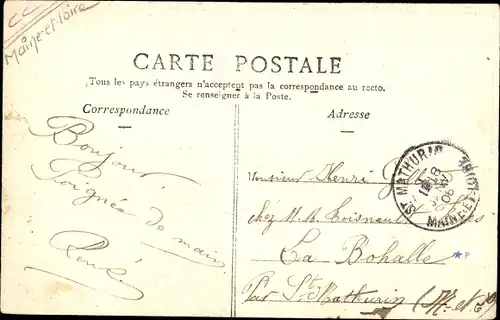 CC
Maine-et-Loire
CARTE POSTALE
(Tous les pays étrangers n'acceptent pas la correspondance au recto.
Se renseigner à la Poste.
Correspondance
Adresse
Bonjour
Poignée de main
René
Monsieur Henri
chez M.
La Bohalle
Par St Mathurin (M. et L.)
ST MATHURIN
MAINE-ET-LOIRE